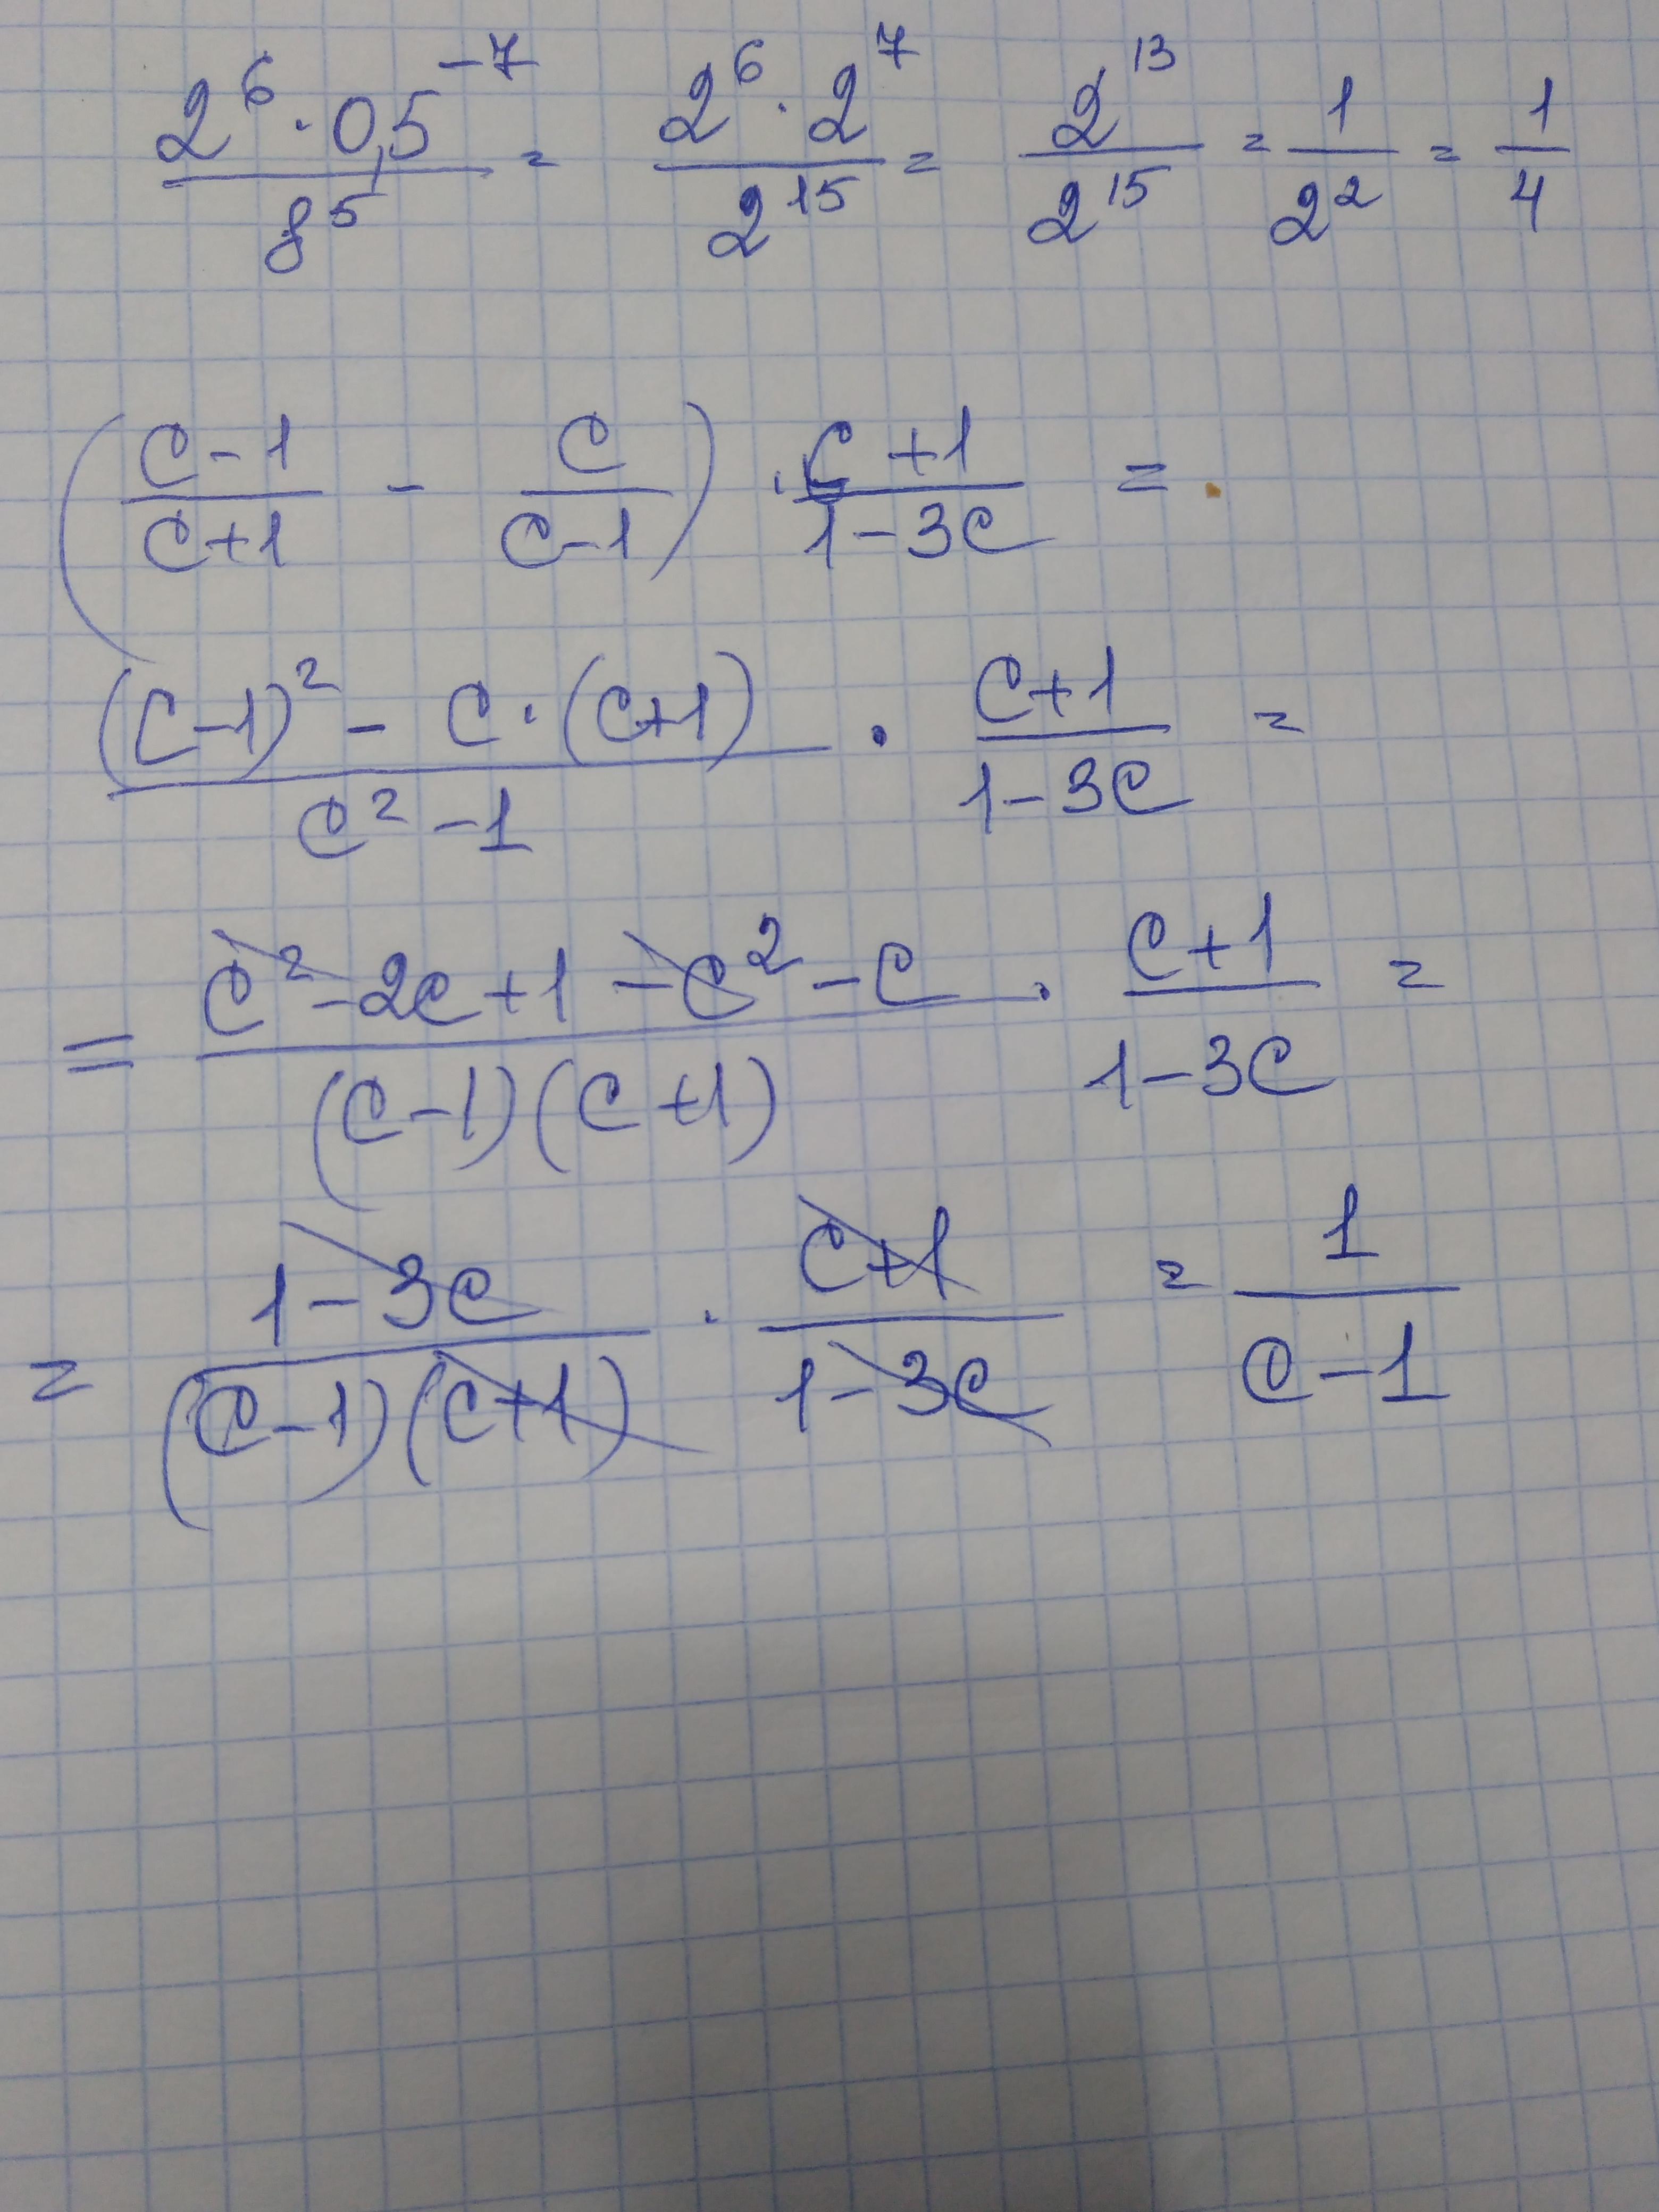 2⁶ · 0,5⁻⁷ / 8⁵ = 2⁶ · 2⁷ / 2¹⁵ = 2¹³ / 2¹⁵ = 1 / 2² = 1 / 4
( c-1 / c+1 - c / c-1 ) · c+1 / 1-3c =
(c-1)² - c·(c+1) / c²-1 · c+1 / 1-3c =
= c²-2c+1-c²-c / (c-1)(c+1) · c+1 / 1-3c =
= 1-3c / (c-1)(c+1) · c+1 / 1-3c = 1 / c-1